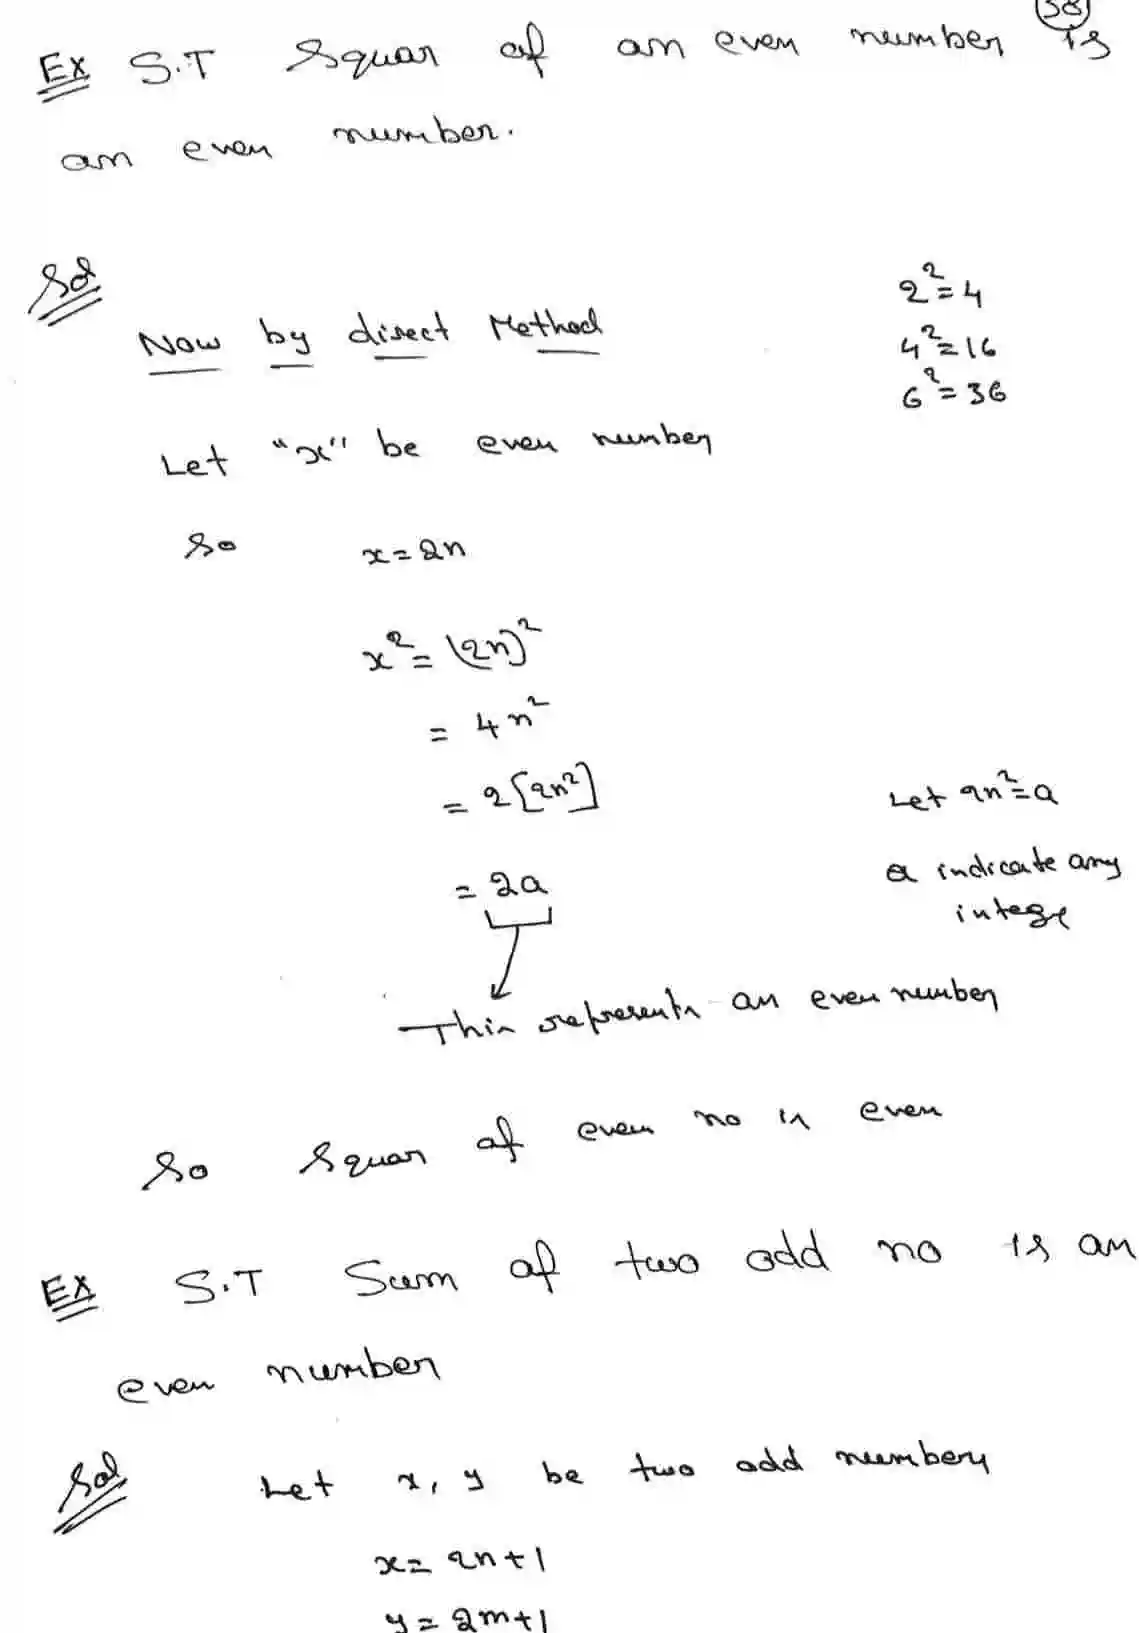 38
Ex S.T Squar of an even number is
an even number.
Sol
Now by direct Method
2² = 4
4² = 16
6² = 36
Let "x" be even number
So x = 2n
x² = (2n)²
= 4n²
= 2[2n²]
Let 2n² = a
= 2a
a indicate any
intege
This represents an even number
So Squar of even no is even
Ex S.T Sum of two odd no is an
even number
Sol Let x, y be two odd number
x = 2n+1
y = 2m+1